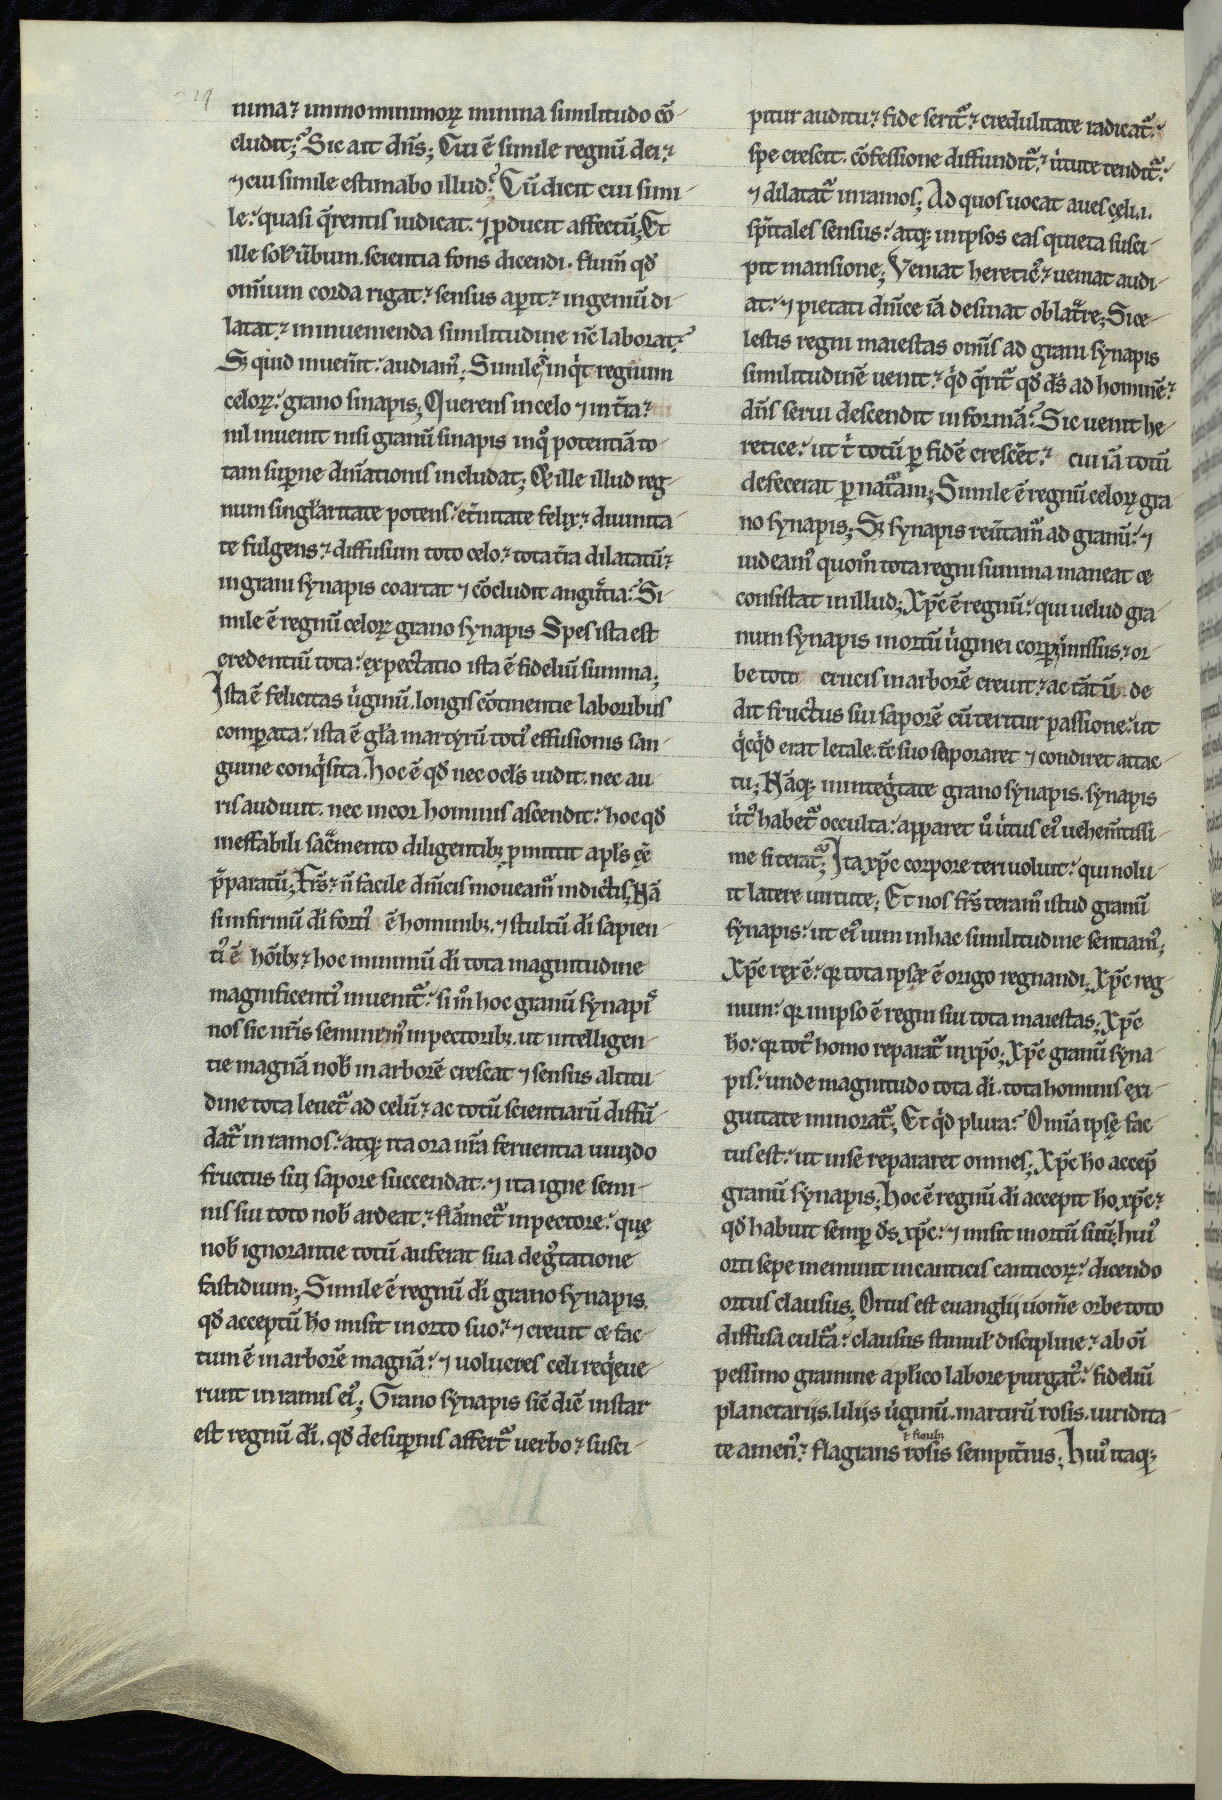 nima? immo minimoꝝ minima similitudo cō-
cludit; Sic ait dn̄s; Cui ē simile regnū dei?
⁊ cui simile estimabo illud? Cū dicit cui simi-
le: quasi q̄rentis iudicat. ⁊ ꝓducit affectū; Et
ille sol' ūbum. scientia fons dicendi. flum̄ qđ
omīum corda rigat? sensus aꝑit? ingeniū di-
latat? in inuenienda similitudine nc̄ laborat?
Sꝫ quid inuen̄it: audiam᷒; Simile ē inqͥt regnum
celoꝝ: grano sinapis; Querens in celo ⁊ in t̄ra?
nil inuenit nisi granū sinapis in qͦ potentiā to-
tam suꝑne dn̄ationis includat; Et ille illud reg-
num singl'aritate potens: et̄nitate felix? diuinita-
te fulgens? diffusum toto celo? tota t̄ra dilatatū?
in grani synapis coartat ⁊ cōcludit angustia: Si-
mile ē regnū celoꝝ grano synapis Spes ista est
credentiū tota: expectatio ista ē fideliū summa;
Ista ē felicitas ůginū. longis cōtinentie laboribus
comꝑata: ista ē gl'a martyrū toti᷒ effusionis san-
guine conqͥsita. hoc ē qđ nec ocl's uidit. nec au-
ris audiuit. nec in cor hominis ascendit: hoc qđ
ineffabili sac̄mento diligentibꝫ ꝓmittit apl's eē
p̄paratū; Fr̄s? n̄ facile dn̄icis moueam᷒ in dictis; Nā
si infirmū di forti᷒ ē hominibꝫ. ⁊ stultū di sapien-
ti᷒ ē hōibꝫ? hoc minimū di tota magnitudine
magnificenti᷒ inuenit᷑: si m̊ hoc granū synapis
nos sic nr̄is seminem᷒ in pectoribꝫ. ut intelligen-
tie magnā nob' in arborē crescat ⁊ sensus altitu-
dine tota leuet᷑ ad celū? ac totū scientiarū diffū-
dat᷑ in ramos: atqꝫ ita ora nr̄a feruentia uiuido
fructus sui sapore succendat. ⁊ ita igne semi-
nis sui toto nob' ardeat? flāmet᷑ in pectore: quę
nob' ignorantie totū auferat sua degͧtatione
fastidium; Simile ē regnū di grano synapis.
qđ acceptū ħo misit in orto suo? ⁊ creuit ⁊ fac-
tum ē in arborē magnā: ⁊ uolucres celi reqͥeue-
runt in ramis ei᷒; Grano synapis sic̄ dic̄ instar
est regnū di. qđ desuꝑnis affert᷑ uerbo? susci-
pitur auditu? fide serit᷑? credulitate radicat᷑:
spe crescit. cōfessione diffundit᷑? ůtute tendit᷑:
⁊ dilatat᷑ in ramos; Ad quos uocat aues cęli .i.
sp̄itales sensus: atqꝫ in ipsos eas quieta susci-
pit mansione; Veniat heretic᷒? ueniat audi-
at: ⁊ pietati dn̄ice iā desinat oblat᷑re; Si ce-
lestis regni maiestas omīs ad grani synapis
similitudinē uenit? qͥd q̄rit᷑ qđ ds̄ ad hominē?
dn̄s serui descendit in formā? Sic uenit he-
retice: ut t̊ totū ꝑ fidē crescēt? cui iā totū
defecerat ꝑ nat᷑am; Simile ē regnū celoꝝ gra-
no synapis; Sꝫ synapis reu̇tam᷒ ad granū: ⁊
uideam᷒ quom̊ tota regni summa maneat ⁊
consistat in illud; Xp̄c ē regnū: qui uelud gra-
num synapis in ortū ůginei corꝑis missus? or-
be toto crucis in arborē creuit? ac tātū de-
dit fructus sui saporē cū teritur passione: ut
qͥcqͥd erat letale. tc̄ suo saporaret ⁊ condiret attac-
tu; Nāqꝫ in integͥtate grano synapis. synapis
ůt᷒ habet᷑ occulta: apparet ů ůtus ei᷒ uehem̄tissi-
me si terat᷑; Ita xp̄c corpore teri uoluit: qui nolu-
it latere uirtute; Et nos fr̄s teram᷒ istud granū
synapis: ut ei᷒ uim in hac similitudine sentiam᷒;
Xp̄c rex ē: qꝛ tota ipsæ ē origo regnandi. Xp̄c reg-
num: qꝛ in ipso ē regni sui tota maiestas; Xp̄c
ħo: qꝛ tot᷒ homo reparat᷑ in xp̄o; Xp̄c granū syna-
pis: unde magnitudo tota di. tota hominis exi-
guitate minorat᷑; Et qͥd plura: Omīa ipsę fac-
tus est: ut in se repararet omnes; Xp̄c ħo accep̄
granū synapis; hoc ē regnū di accepit ħo xp̄c?
qđ habuit semꝑ ds̄ xp̄c: ⁊ misit in ortū suū; hui᷒
orti sepe meminit in canticis canticoꝝ: dicendo
ortus clausus; Ortus est euanglij nom̄e orbe toto
diffusa cult᷑a: clausus stimul' discipline? ab oī
pessimo gramine apl'ico labore purgat᷒: fideliū
planctarijs. lilijs ůginū. martirū rosis. uiridita-
te amen᷒? flagrans rosis sempit̄nis; hui᷒ itaqꝫ